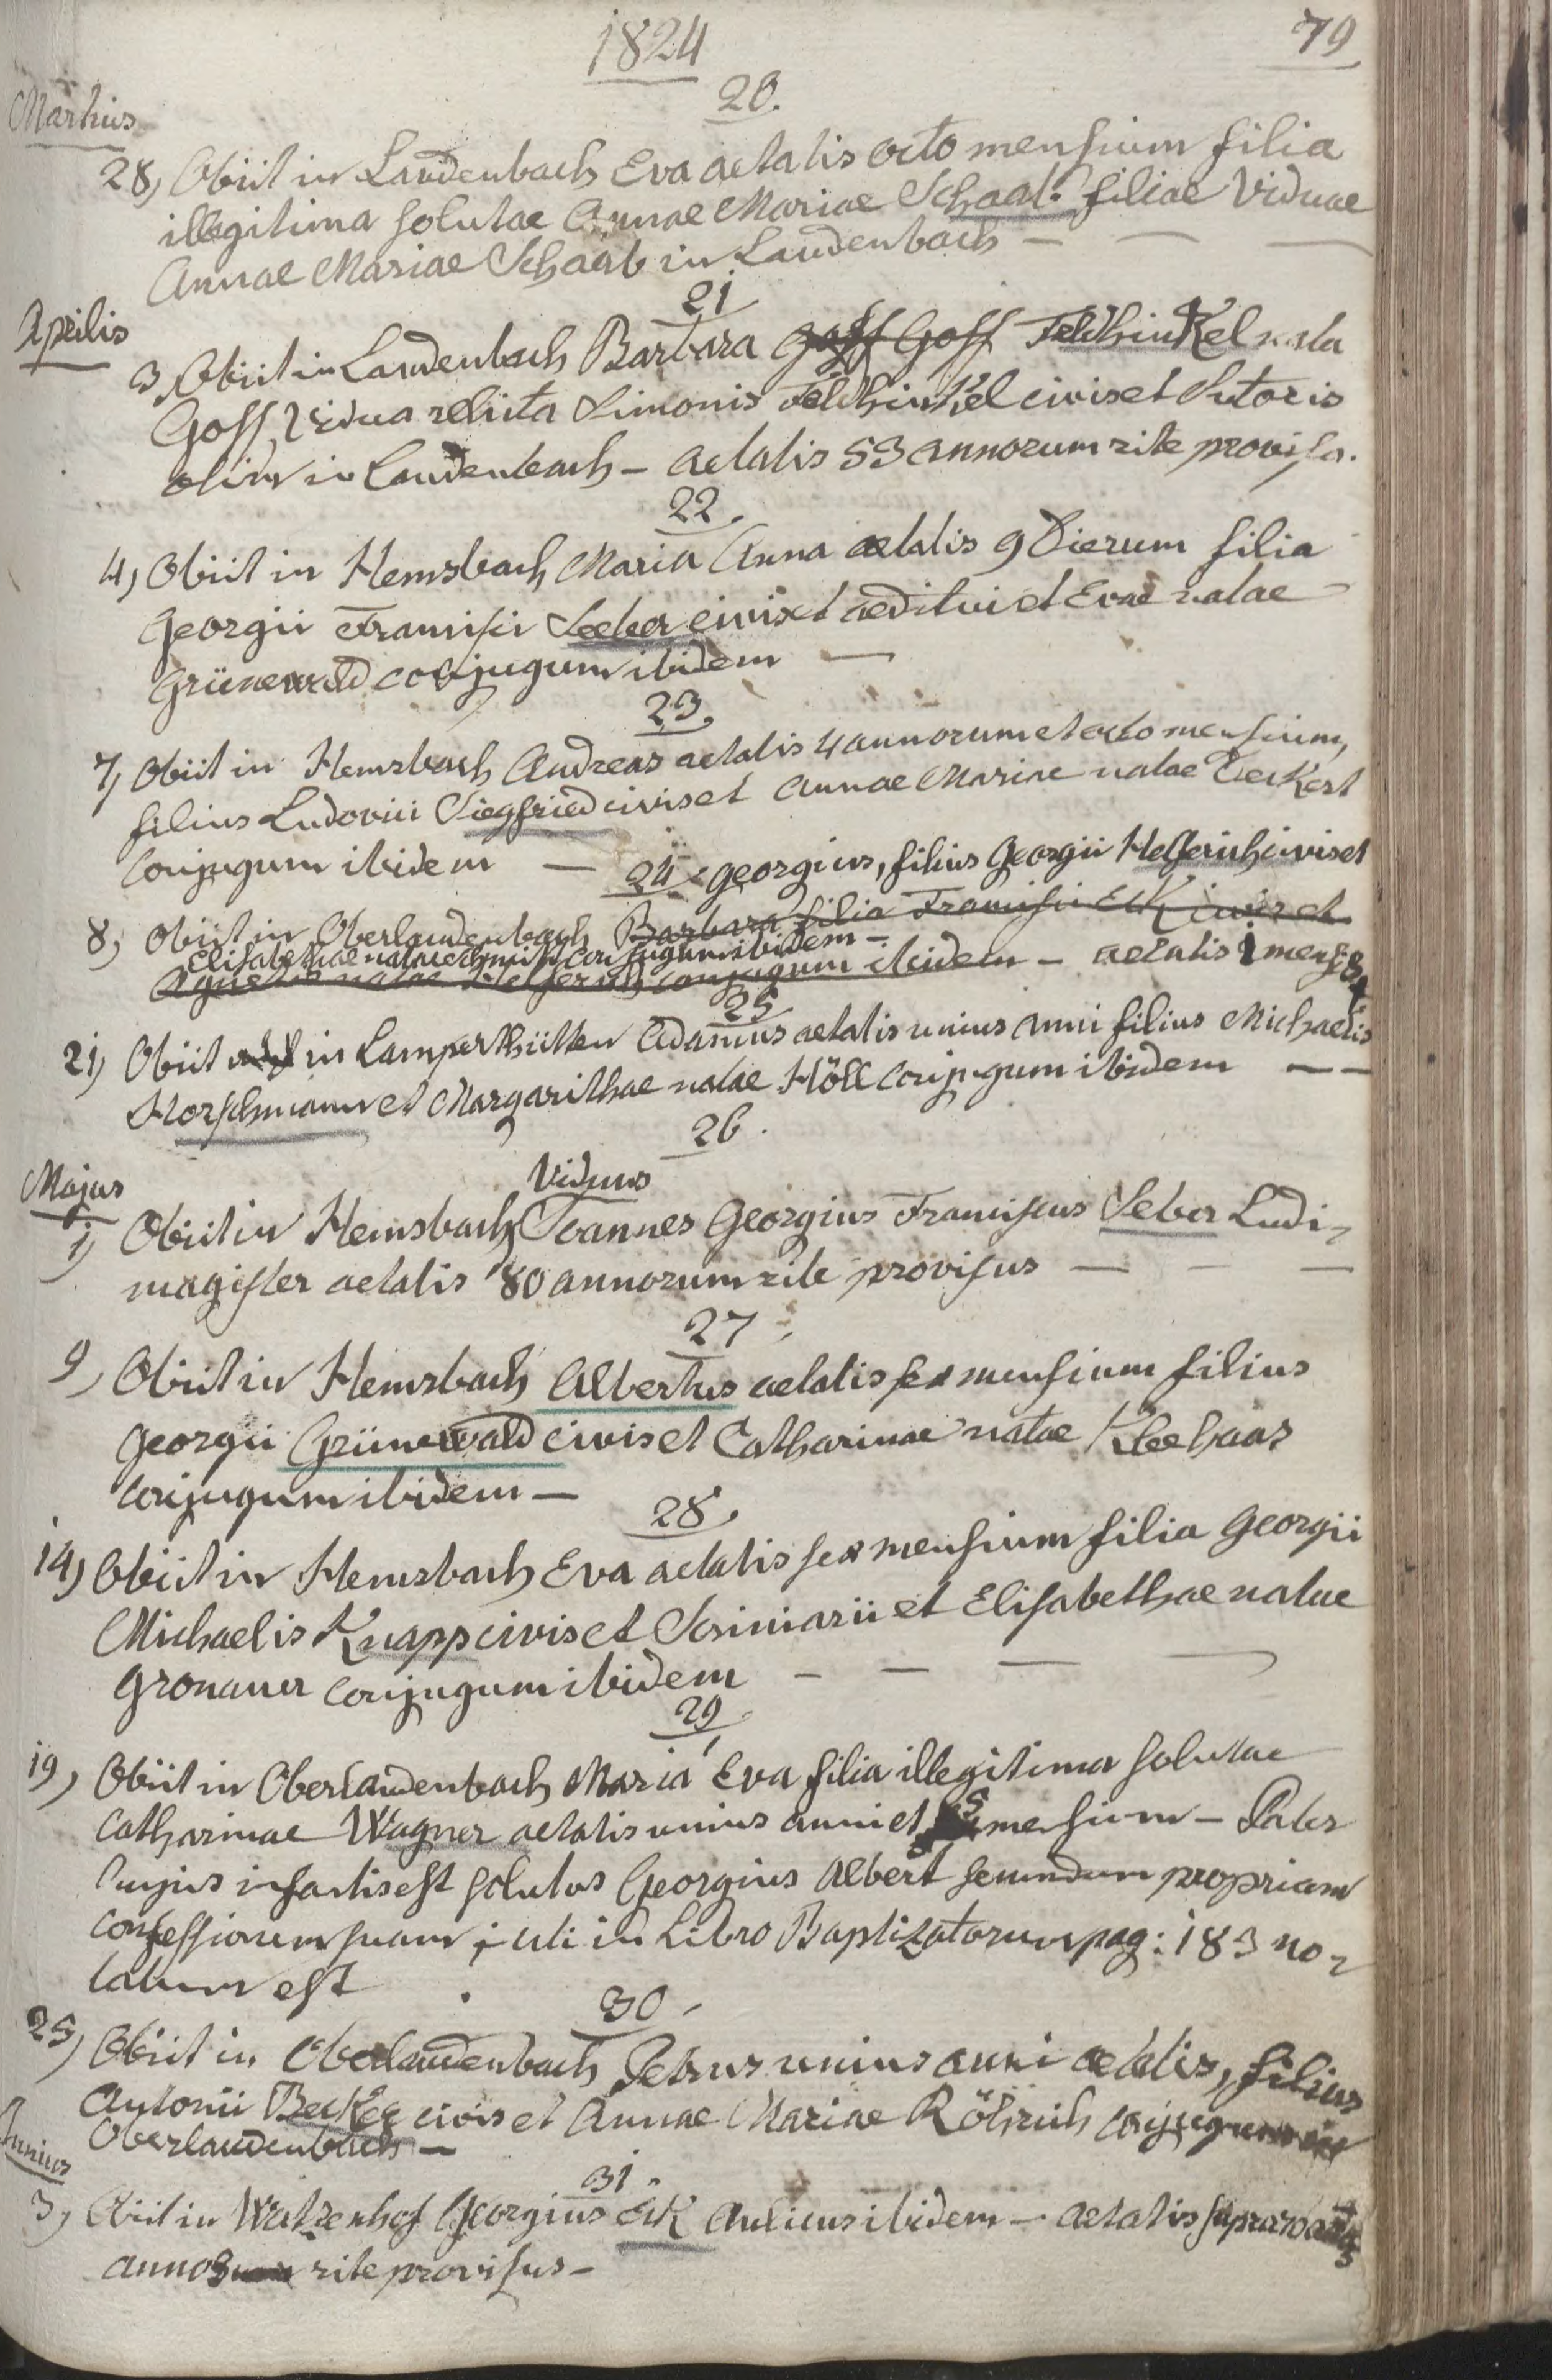 1824
79
20.
Martius
28, Obiit in Laudenbach Eva aetatis octo mensium filia
illegitima solutae Annae Mariae Schaab filiae Viduae
Annae Mariae Schaab in Laudenbach —
21
Aprilis
3, Obiit in Laudenbach Barbara Goff Goff Feldhinkel nata
Goff, Vidua relicta Simonis Feldhinkel civis et Sutoris
olim in Laudenbach – aetatis 53 annorum rite provisa.
22.
4, Obiit in Hemsbach Maria Anna aetatis 9 Dierum filia
Georgii Francisci Seeber civis et aeditui et Evae natae
Grünewald conjugum ibidem —
23.
7, Obiit in Hemsbach Andreas aetatis 4 annorum et octo mensium,
filius Ludovici Siegfried civis et Annae Mariae natae Eeckert
Conjugum ibidem —
24. Georgius, filius Georgii Helferich civis et
8, Obiit in Oberlaudenbach Barbara filia Francisci Eck civis et
Elisabethae natae Schmitt conjugum ibidem –
Agnetis natae Helferich conjugum ibidem – aetatis 1 mensis
25
21, Obiit in Lamperthütten Adamus aetatis unius anni filius Michaelis
Horschmann et Margarithae natae Höll Conjugum ibidem — —
26.
Majus
Viduus
1, Obiit in Hemsbach Joannes Georgius Franciscus Seber Ludi-
magister aetatis 80 annorum rite provisus — – —
27.
9, Obiit in Hemsbach Albertus aetatis sex mensium filius
Georgii Grünewald civis et Catharinae natae Kleehaas
Conjugum ibidem —
28.
14, Obiit in Hemsbach Eva aetatis sex mensium filia Georgii
Michaelis Knapp civis et Scriniarii et Elisabethae natae
Gronauer conjugum ibidem – — — —
29.
19, Obiit in Oberlaudenbach Maria Eva filia illegitima solutae
Catharinae Wagner aetatis unius anni et 5 mensium – Pater
hujus infantis est solutus Georgius Albert secundum propriam
confessionem suam, uti in Libro Baptizatorum pag: 183 no-
tatum est.
30.
25, Obiit in Oberlaudenbach Petrus unius anni aetatis, filius
Antonii Becker civis et Annae Mariae Röhrich conjugum in
Oberlaudenbach —
31.
Junius
3, Obiit in Watzenhof Georgius Eck Aulicus ibidem – aetatis supra 70
annos rite provisus –